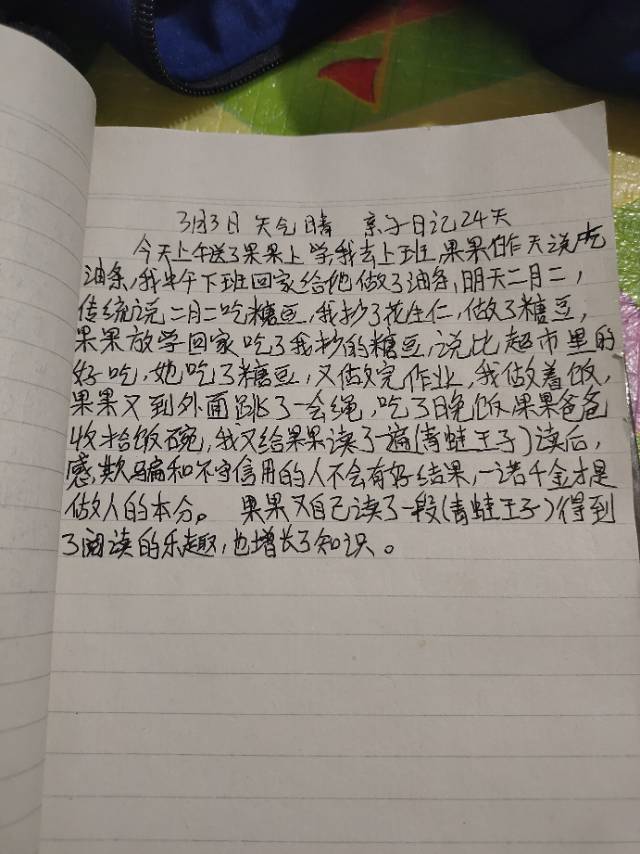 3月3日 天气晴 亲子日记24天
今天上午送了果果上学,我去上班,果果昨天说吃
油条,我中午下班回家给他做了油条,明天二月二,
传统说二月二吃糖豆,我抄了花生仁,做了糖豆,
果果放学回家吃了我抄的糖豆,说比超市里的
好吃,她吃了糖豆,又做完作业,我做着饭,
果果又到外面跳了一会绳,吃了晚饭果果爸爸
收拾饭碗,我又给果果读了一遍(青蛙王子)读后,
感,欺骗和不守信用的人不会有好结果,一诺千金才是
做人的本分。 果果又自己读了一段(青蛙王子)得到
了阅读的乐趣,也增长了知识。